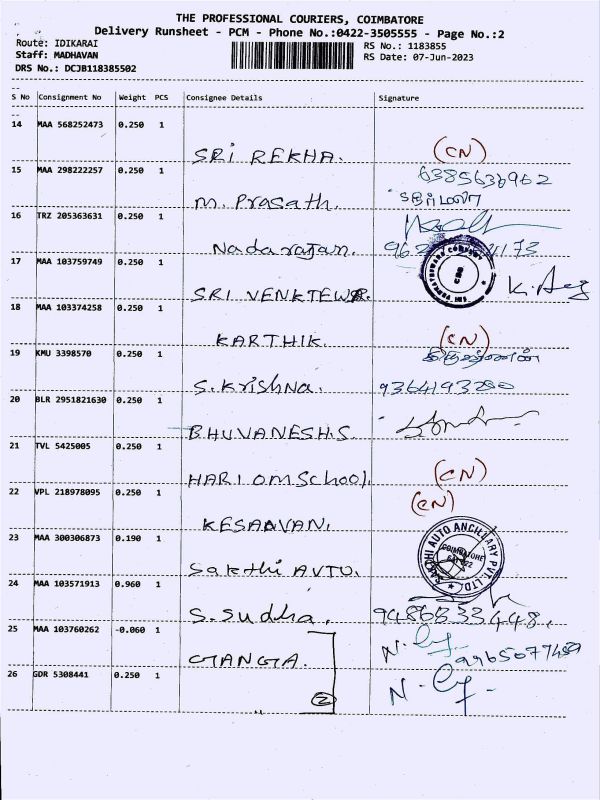 THE PROFESSIONAL COURIERS, COIMBATORE
Delivery Runsheet - PCM - Phone No.:0422-3505555 - Page No.:2
Route: IDIKARAI
RS No.: 1183855
Staff: MADHAVAN
RS Date: 07-Jun-2023
DRS No.: DCJB118385502
S No Consignment No Weight PCS Consignee Details Signature
14 MAA 568252473 0.250 1
SRI REKHA. (CN)
15 MAA 298222257 0.250 1 6385636962
M. Prasath.
16 TRZ 205363631 0.250 1
Nadarajan.
17 MAA 103759749 0.250 1
SRI VENKTEWR.
18 MAA 103374258 0.250 1
KARTHIK. (CN)
19 KMU 3398570 0.250 1
S. Krishna. 9364193280
20 BLR 2951821630 0.250 1
BHUVANESH.S
21 TVL 5425005 0.250 1
HARI OM School. (CN)
22 VPL 218978095 0.250 1 (CN)
KESAAVAN.
23 MAA 300306873 0.190 1
SAKTHI AUTO ANCILLARY PVT. LTD.
COIMBATORE
Sakthi AUTO.
24 MAA 103571913 0.960 1
S. Sudha. 9486833448.
25 MAA 103760262 -0.060 1
GANGA.
26 GDR 5308441 0.250 1
2